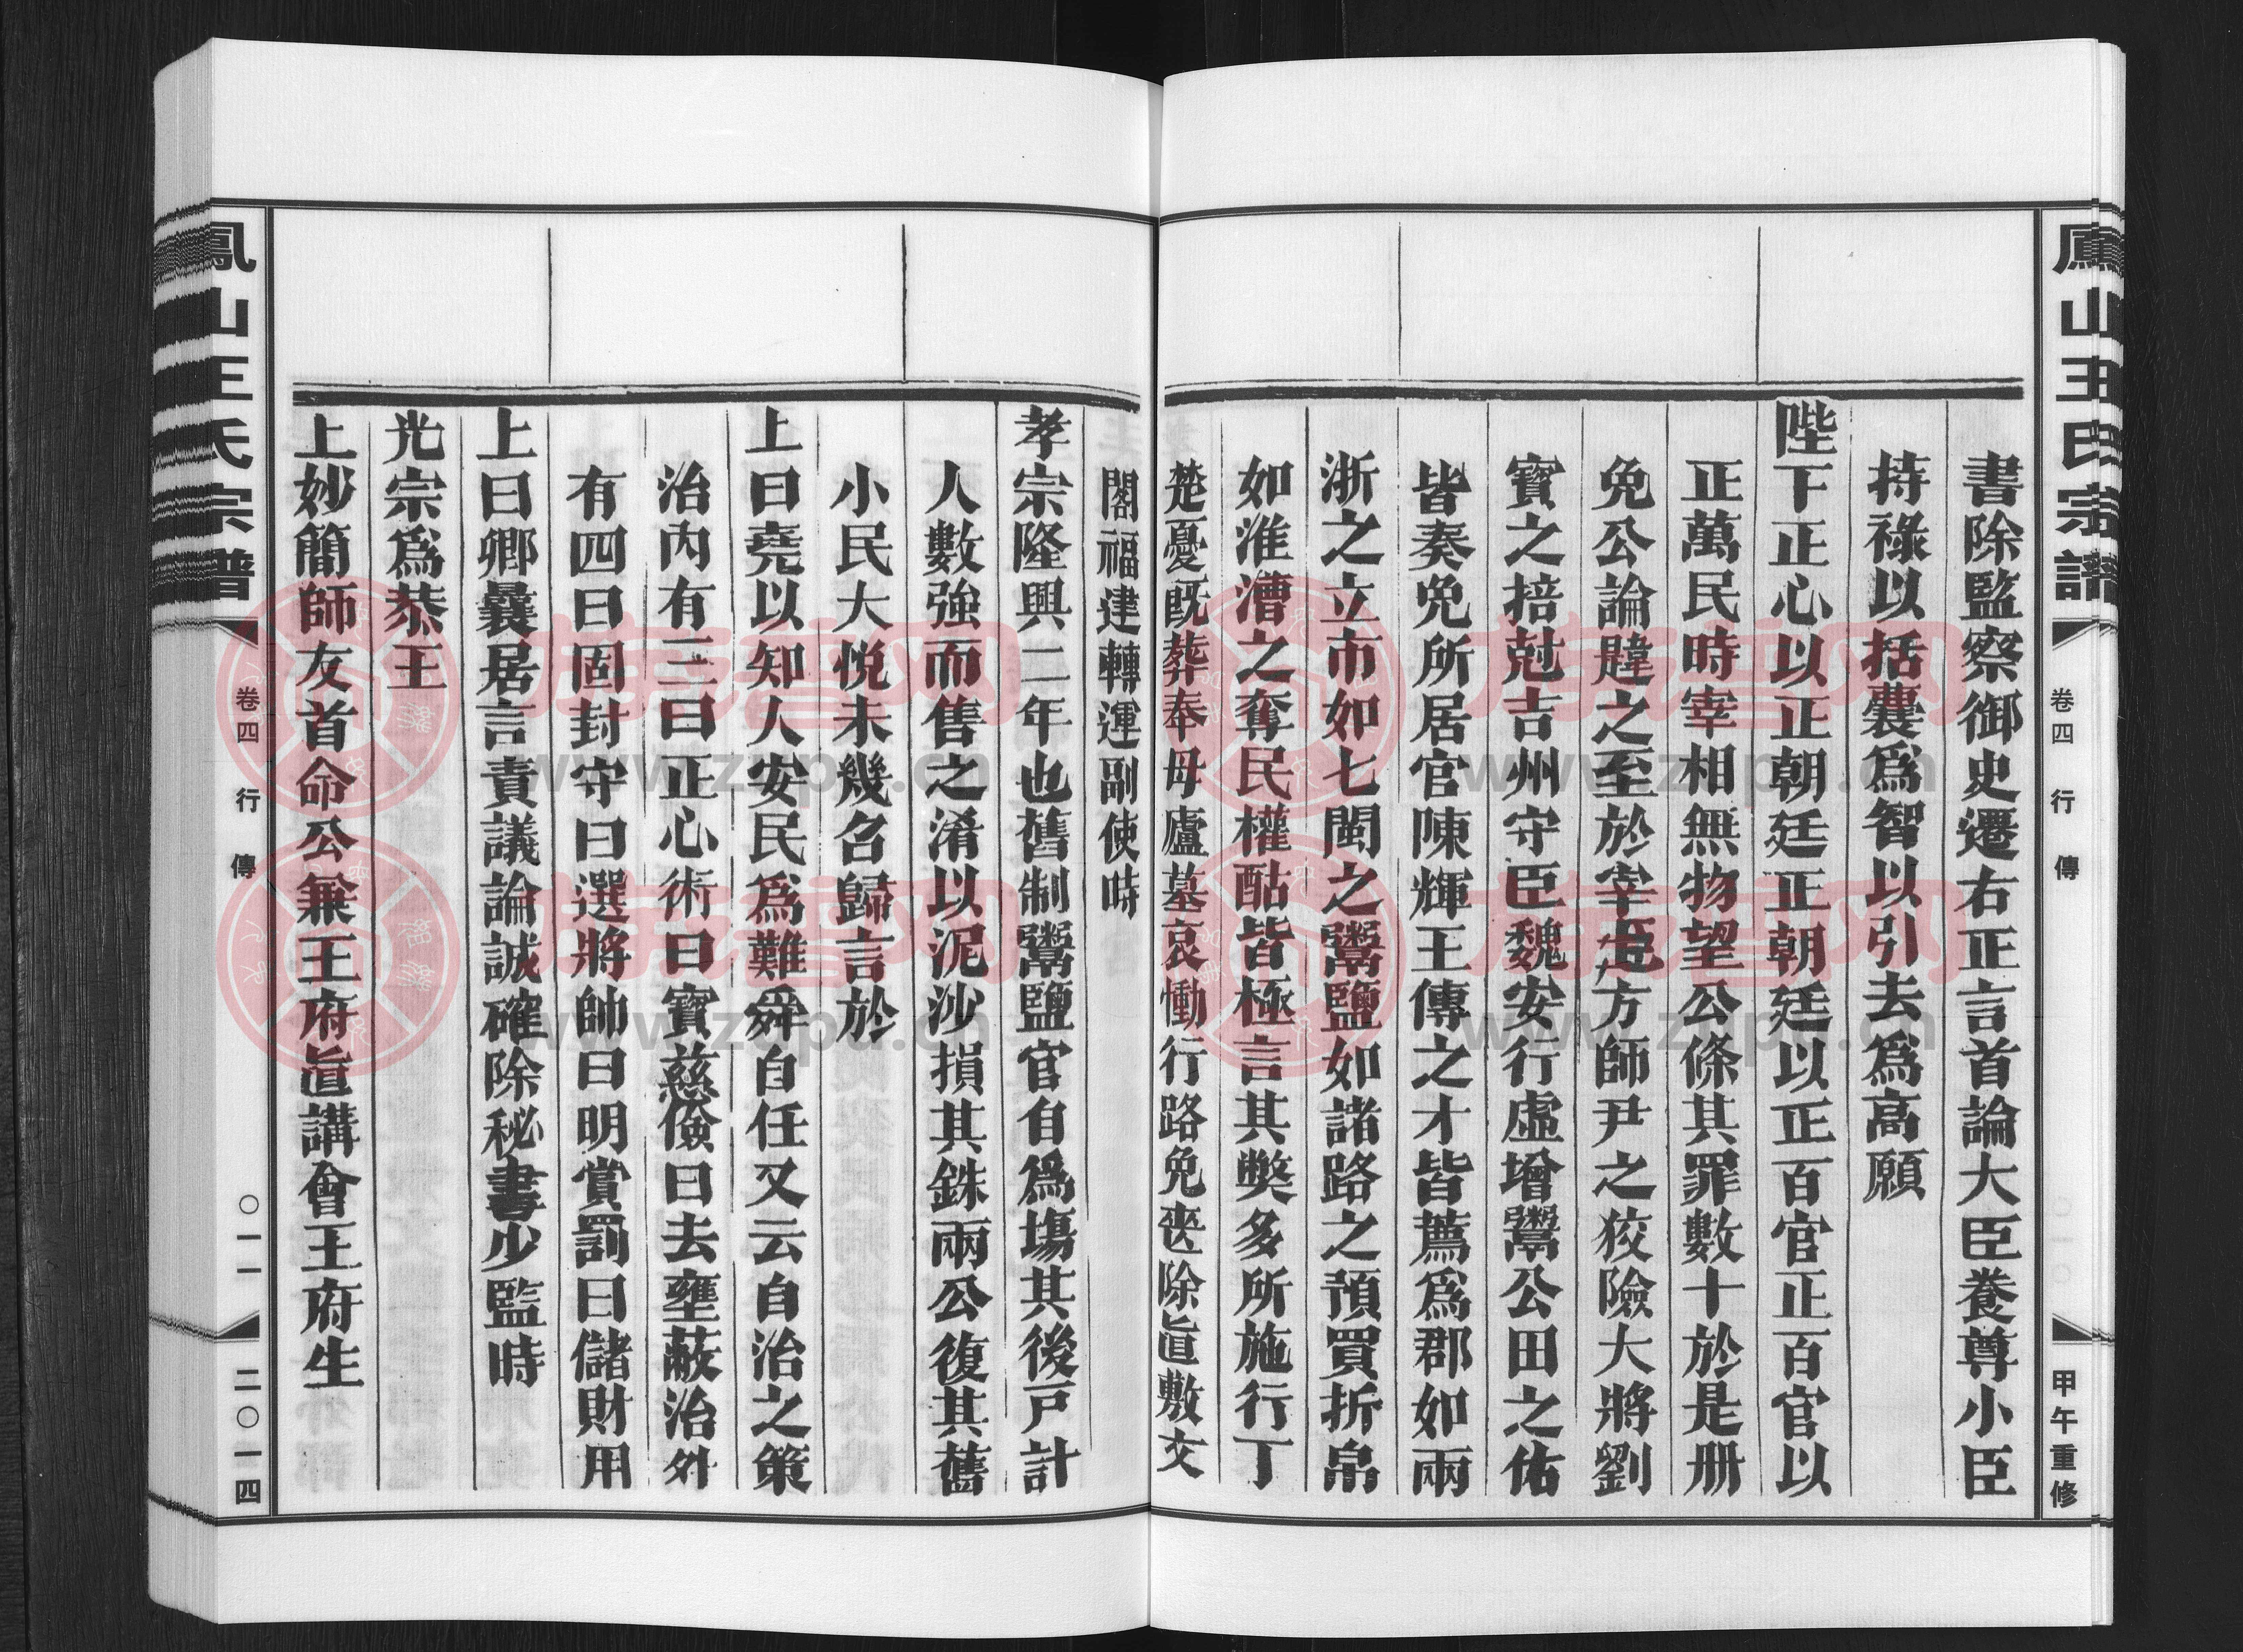 鳳山王氏宗譜
卷四 行傳
甲午重修
書除監察御史遷右正言首論大臣養尊小臣
持祿以括囊爲智以引去爲高願
陛下正心以正朝廷正朝廷以正百官正百官以
正萬民時宰相無物望公條其罪數十於是册
免公論韙之至於宰臣方師尹之狡險大將劉
寶之掊尅吉州守臣魏安行虛增鬻公田之佑
皆奏免所居官陳輝王傳之才皆薦爲郡如兩
浙之立市如七閩之鬻鹽如諸路之預買折帛
如淮漕之奪民權酤皆極言其獘多所施行丁
楚憂旣葬奉母廬墓哀慟行路免喪除直敷文
閣福建轉運副使時
孝宗隆興二年也舊制鬻鹽官自爲塲其後戸計
人數強而售之淆以泥沙損其銖兩公復其舊
小民大悅未幾召歸言於
上曰堯以知人安民爲難舜自任又云自治之策
治内有三曰正心術曰寳慈儉曰去壅蔽治外
有四曰固封守曰選將帥曰明賞罰曰儲財用
上曰卿曩居言責議論誠確除秘書少監時
光宗爲恭王
上妙簡師友首命公兼王府直講會王府生
鳳山王氏宗譜
卷四 行傳
〇一一
二〇一四
www.zupu.cn
www.zupu.cn
www.zupu.cn
www.zupu.cn